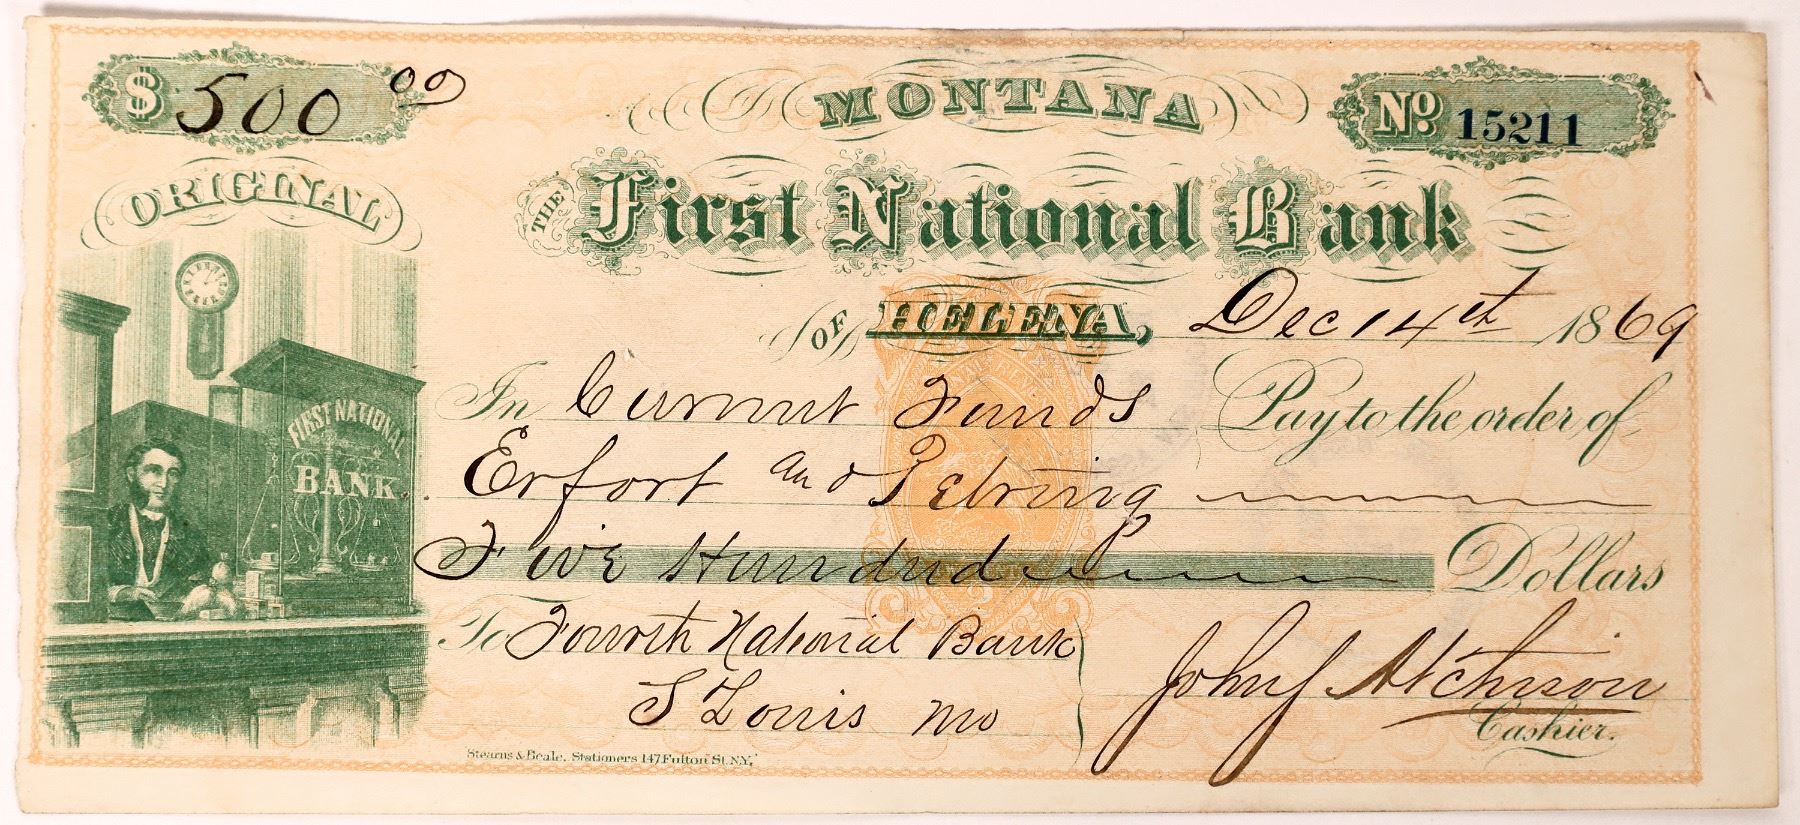 $ 500 00
MONTANA
No 15211
ORIGINAL
THE First National Bank
OF HELENA, Dec 14th 1869
In Current Funds Pay to the order of
Erfort and Petring
Five Hundred Dollars
To Fourth National Bank
S Louis Mo
John J Atchison
Cashier.
FIRST NATIONAL
BANK
Stearns & Beale, Stationers 147 Fulton St. N.Y.